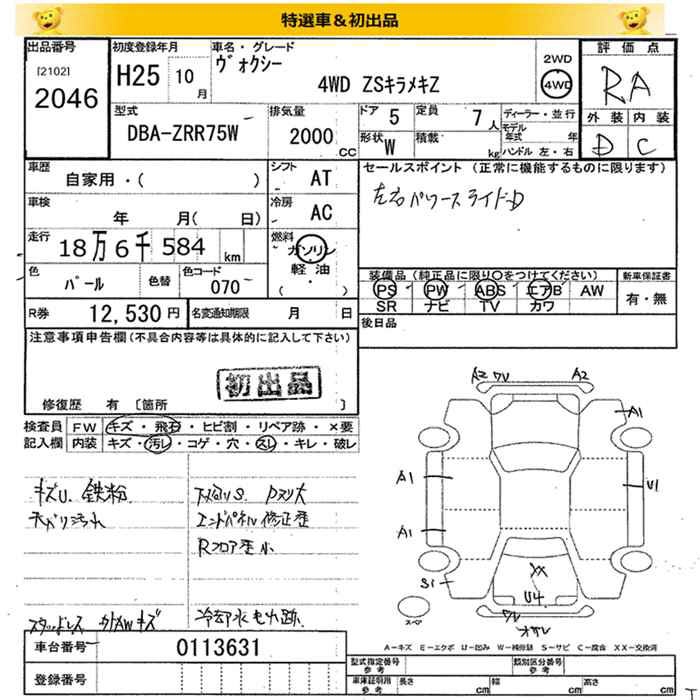 特選車&初出品
出品番号
[2102]
2046
初度登録年月
H25 10月
車名・グレード
ヴォクシー
4WD ZSキラメキZ
2WD
4WD
評価点
RA
外装 内装
D C
型式
DBA-ZRR75W
排気量
2000 CC
ドア 5
定員 7人
形状 W
積載 kg
ディーラー・並行
モデル年式 年
ハンドル 左・右
車歴
自家用・( )
シフト AT
車検
年 月( 日)
冷房 AC
走行
18万6千584 km
燃料
ガソリン
軽油
( ・ )
色
パール
色替
色コード
070
R券 12,530円
名変通知期限 月 日
セールスポイント (正常に機能するものに限ります)
左右パワースライドD
装備品(純正品に限り○をつけてください)
PS PW ABS エアB AW
SR ナビ TV カワ
新車保証書
有・無
後日品
注意事項申告欄(不具合内容等は具体的に記入して下さい)
初出品
修復歴 有 〔箇所 〕
検査員 FW キズ・飛石・ヒビ割・リペア跡・×要
記入欄 内装 キズ・汚レ・コゲ・穴・スレ・キレ・破レ
キズU. 鉄粉
天カリ汚れ
下回りS.
エンドパネル修正歪
Rフロア歪小
スタッドレス 社外AWキズ
冷却水もれ跡
A2 ワU A2
A1
A1
U1
A1
S1
XX
U4
スペア
車台番号 0113631
登録番号
A-キズ E-エクボ U-凹み W-補修跡 S-サビ C-腐食 XX-交換済
型式指定番号 参考
類別区分番号 参考
車庫証明用 参考 長さ cm 幅 cm 高さ cm
T